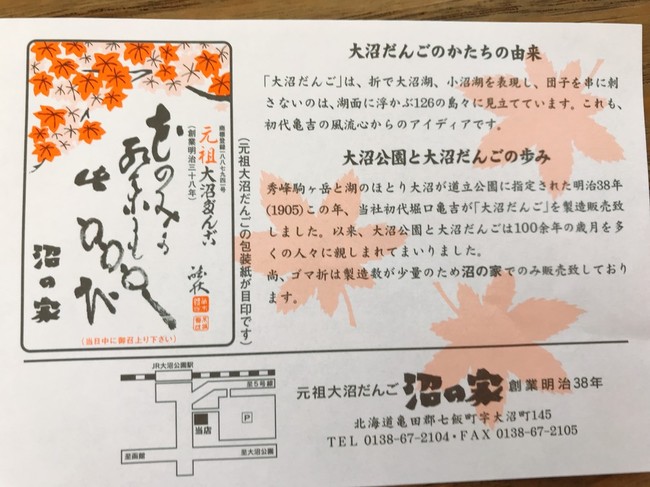 大沼だんごのかたちの由来
「大沼だんご」は、折で大沼湖、小沼湖を表現し、団子を串に刺
さないのは、湖面に浮かぶ126の島々に見立てています。これも、
初代亀吉の風流心からのアイディアです。
大沼公園と大沼だんごの歩み
秀峰駒ヶ岳と湖のほとり大沼が道立公園に指定された明治38年
(1905)この年、当社初代堀口亀吉が「大沼だんご」を製造販売致
しました。以来、大沼公園と大沼だんごは100余年の歳月を多
くの人々に親しまれてまいりました。
尚、ゴマ折は製造数が少量のため沼の家でのみ販売致しており
ます。
(元祖大沼だんごの包装紙が目印です)
元祖大沼だんご
(創業明治三十八年)
沼の家
(当日中に御召上り下さい)
JR大沼公園駅
至5号線
当店
P
至函館
至大沼公園
元祖大沼だんご 沼の家 創業明治38年
北海道亀田郡七飯町字大沼町145
TEL 0138-67-2104・FAX 0138-67-2105